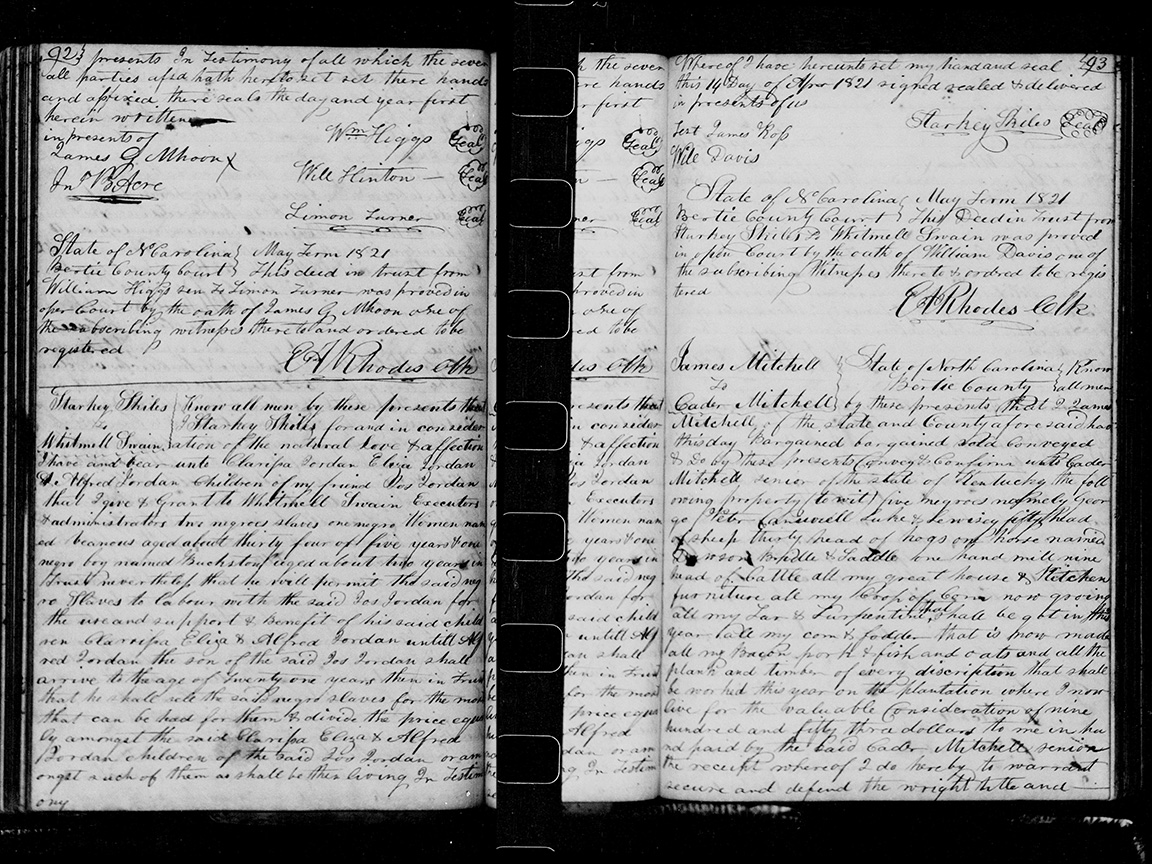 92
presents In Testimony of all which the seven
all parties afsd hath hereto set set there hands
and affixed there seals the day and year first
herein written
in presents of
James G Mhoon X
Jnr B Acre
Wm Higgs Seal
Will Hinton — Seal
Simon Turner Seal
State of No Carolina } May Term 1821
Bertie County Court } This deed in trust from
William Higgs sen to Simon Turner was proved in
open Court by the oath of James G Mhoon one of
the subscribing witness thereto and ordered to be
registered
E A Rhodes Clk
Starkey Skiles } Know all men by these presents that
to } I Starkey Skiles for and in consider
Whitmell Swain } ation of the natural love & affection
I have and bear unto Clarissa Jordan Eliza Jordan
& Alfred Jordan Children of my friend Jos Jordan
that I give & Grant to Whitmell Swain Executors
& administrators two negroes slaves one negro Women nam
ed aged about thirty four or five years & one
negro boy named aged about two years in
trust nevertheless that he will permit the said neg
ro Slaves to labour with the said Jos Jordan for
the use and support & Benefit of his said child
ren Clarissa Eliza & Alfred Jordan untill Alf
red Jordan the son of the said Jos Jordan shall
arrive to the age of Twenty one years then in trust
that he shall sell the said negro slaves for the most
that can be had for them & divide the price equa
ly amongst the said Clarissa Eliza & Alfred
Jordan children of the said Jos Jordan or am
ongst such of them as shall be then living In Testim
ony
93
Whereof I have hereunto set my hand and seal
this 14th Day of Apr 1821 signed sealed & delivered
in presents of us
Test James Ross
Will Davis
Starkey Skiles Seal
State of No Carolina } May Term 1821
Bertie County Court } This Deed in Trust from
Starkey Skiles to Whitmell Swain was proved
in open Court by the oath of William Davis one of
the subscribing Witnesses thereto & ordred to be regis
tered
E A Rhodes Clk
James Mitchell } State of North Carolina } Know
to } Bertie County } all men
Cader Mitchell } by these presents that I James
Mitchell of the State and County aforesaid hav
this day Bargained bargained sold conveyed
& Do by these presents Convey & Confirm unto Cader
Mitchell senior of the state of Kentucky the foll
owing property (to wit) five negroes namely Geor
ge Peter Luke & fifty head
of sheep thirty head of hogs one horse named
Bridle & Saddle one hand mill nine
head of Cattle all my great house & Kitchen
furniture all my Crop of Corn now growing
all my Tar & Turpentine that shall be got in this
year all my corn & fodder that is now made
all my Bacon pork & fish and oats and all the
plank and timber of every discription that shall
be worked this year on the plantation where I now
live for the valuable Consideration of nine
hundred and fifty three dollars to me in ha
nd paid by the said Cader Mitchell senior
the receipt whereof I do hereby to warrant
secure and defend the wright title and